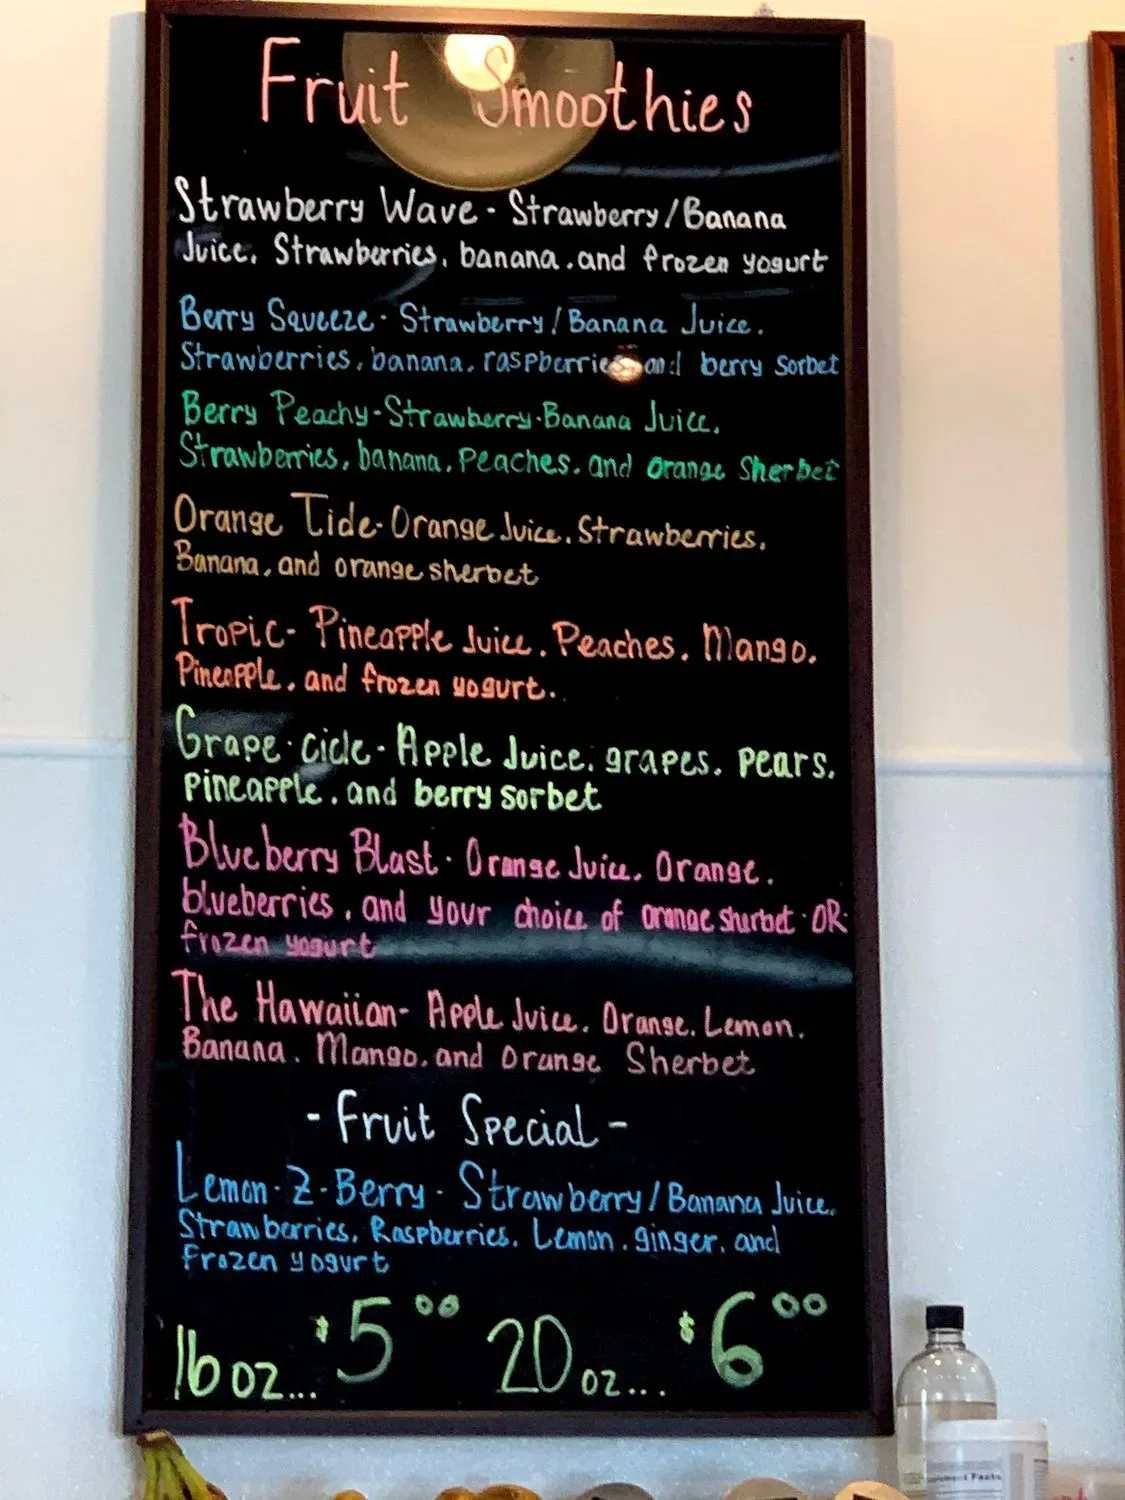 Fruit Smoothies
Strawberry Wave - Strawberry/Banana
Juice, Strawberries, banana, and frozen yogurt
Berry Squeeze - Strawberry/Banana Juice,
Strawberries, banana, raspberries and berry sorbet
Berry Peachy-Strawberry-Banana Juice,
Strawberries, banana, Peaches, and orange Sherbet
Orange Tide-Orange Juice, Strawberries,
Banana, and orange sherbet
Tropic- Pineapple Juice, Peaches, Mango,
Pineapple, and frozen yogurt.
Grape-cicle - Apple Juice, grapes, pears,
pineapple, and berry sorbet
Blueberry Blast - Orange Juice, Orange,
blueberries, and your choice of orange sherbet -OR-
frozen yogurt
The Hawaiian- Apple Juice, Orange, Lemon,
Banana, Mango, and Orange Sherbet
- Fruit Special -
Lemon-Z-Berry - Strawberry/Banana Juice,
Strawberries, Raspberries, Lemon, ginger, and
Frozen yogurt
16 oz... $5.00 20 oz... $6.00
Facts